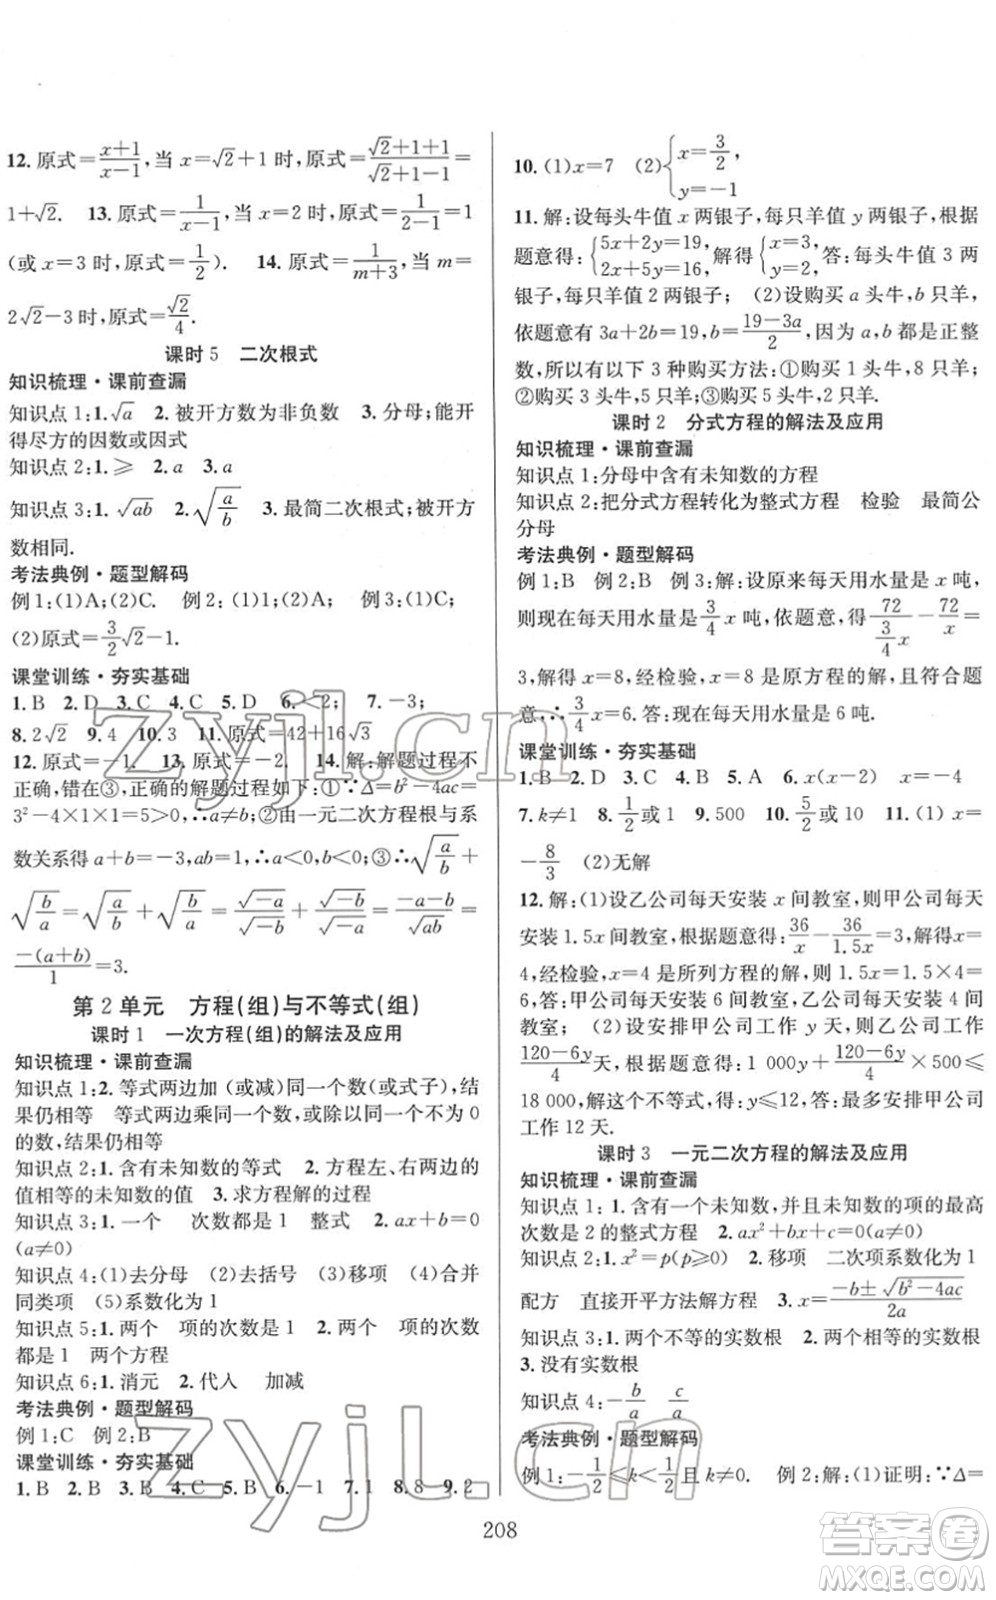 12. 原式=\frac{x+1}{x-1},当 x=√2+1 时,原式=\frac{√2+1+1}{√2+1-1}=
1+√2. 13. 原式=\frac{1}{x-1},当 x=2 时,原式=\frac{1}{2-1}=1
(或 x=3 时,原式=\frac{1}{2}). 14. 原式=\frac{1}{m+3},当 m=
2√2-3 时,原式=\frac{√2}{4}.
课时 5 二次根式
知识梳理·课前查漏
知识点 1:1. √a 2. 被开方数为非负数 3. 分母;能开
得尽方的因数或因式
知识点 2:1. ≥ 2. a 3. a
知识点 3:1. √ab 2. √\frac{a}{b} 3. 最简二次根式;被开方
数相同.
考法典例·题型解码
例 1:(1)A;(2)C. 例 2:(1)A 例 3:(1)C;
(2)原式=\frac{3}{2}√2-1.
课堂训练·夯实基础
1. B 2. D 3. C 4. C 5. D 6. <2; 7. -3;
8. 2√2 9. 4 10. 3 11. 原式=42+16√3
12. 原式=-1. 13. 原式=-1. 14. 解:解题过程不
正确,错在③,正确的解题过程如下:①∵Δ=b²-4ac=
3²-4×1×1=5>0,∴a≠b;②由一元二次方程根与系
数关系得 a+b=-3,ab=1,∴a<0,b<0;③∴√\frac{a}{b}+
√\frac{b}{a}=√\frac{a}{b}+√\frac{b}{a}=\frac{√-a}{√-b}+\frac{√-b}{√-a}=\frac{-a-b}{√ab}=
\frac{-(a+b)}{1}=3.
第 2 单元 方程(组)与不等式(组)
课时 1 一次方程(组)的解法及应用
知识梳理·课前查漏
知识点 1:2. 等式两边加(或减)同一个数(或式子),
结果仍相等 等式两边乘同一个数,或除以同一个不为 0
的数,结果仍相等
知识点 2:1. 含有未知数的等式 2. 方程左、右两边的
值相等的未知数的值 3. 求方程解的过程
知识点 3:1. 一个 次数都是 1 整式 2. ax+b=0
(a≠0)
知识点 4:(1)去分母 (2)去括号 (3)移项 (4)合并
同类项 (5)系数化为 1
知识点 5:1. 两个 项的次数是 1 2. 两个 项的次数
都是 1 两个方程
知识点 6:1. 消元 2. 代入 加减
考法典例·题型解码
例 1:C 例 2:B
课堂训练·夯实基础
1. B 2. B 3. B 4. C 5. B 6. -1 7. 1 8. 8 9. 2
10. (1)x=7 (2){x=\frac{3}{2},
y=-1
11. 解:设每头牛值 x 两银子,每只羊值 y 两银子,根据
题意得:{5x+2y=19, 2x+5y=16, 解得{x=3, y=2, 答:每头牛值 3 两
银子,每只羊值 2 两银子; (2)设购买 a 头牛,b 只羊,
依题意有 3a+2b=19,b=\frac{19-3a}{2},因为 a、b 都是正整
数,所以有如下 3 种购买方法:①购买 1 头牛,8 只羊;
②购买 3 头牛,5 只羊;③购买 5 头牛,2 只羊.
课时 2 分式方程的解法及应用
知识梳理·课前查漏
知识点 1:分母中含有未知数的方程
知识点 2:把分式方程转化为整式方程 检验 最简公
分母
考法典例·题型解码
例 1:B 例 2:B 例 3:解:设原来每天用水量是 x 吨,
则现在每天用水量是\frac{3}{4}x 吨,依题意,得\frac{72}{\frac{3}{4}x}-\frac{72}{x}=
3,解得 x=8,经检验,x=8 是原方程的解,且符合题
意∴\frac{3}{4}x=6. 答:现在每天用水量是 6 吨.
课堂训练·夯实基础
1. B 2. D 3. C 4. B 5. A 6. x(x-2) x=-4
7. k≠1 8. \frac{1}{2}或 1 9. 500 10. \frac{5}{2}或 10 11. (1) x=
-\frac{8}{3} (2)无解
12. 解:(1)设乙公司每天安装 x 间教室,则甲公司每天
安装 1.5x 间教室,根据题意得:\frac{36}{x}-\frac{36}{1.5x}=3,解得 x=
4,经检验,x=4 是所列方程的解,则 1.5x=1.5×4=
6,答:甲公司每天安装 6 间教室,乙公司每天安装 4 间
教室; (2)设安排甲公司工作 y 天,则乙公司工作
\frac{120-6y}{4}天,根据题意得:1 000y+\frac{120-6y}{4}×500≤
18 000,解这个不等式,得:y≤12,答:最多安排甲公司
工作 12 天.
课时 3 一元二次方程的解法及应用
知识梳理·课前查漏
知识点 1:1. 含有一个未知数,并且未知数的项的最高
次数是 2 的整式方程 2. ax²+bx+c=0(a≠0)
知识点 2:1. x²=p(p≥0) 2. 移项 二次项系数化为 1
配方 直接开平方法解方程 3. x=\frac{-b±√b²-4ac}{2a}
知识点 3:1. 两个不等的实数根 2. 两个相等的实数根
3. 没有实数根
知识点 4:-\frac{b}{a} \frac{c}{a}
考法典例·题型解码
例 1:-\frac{1}{2}≤k<\frac{1}{2}且 k≠0. 例 2:解:(1)证明:∵Δ=
208
zyjl.cn
zyjl.cn
答案圈
MXQE.COM